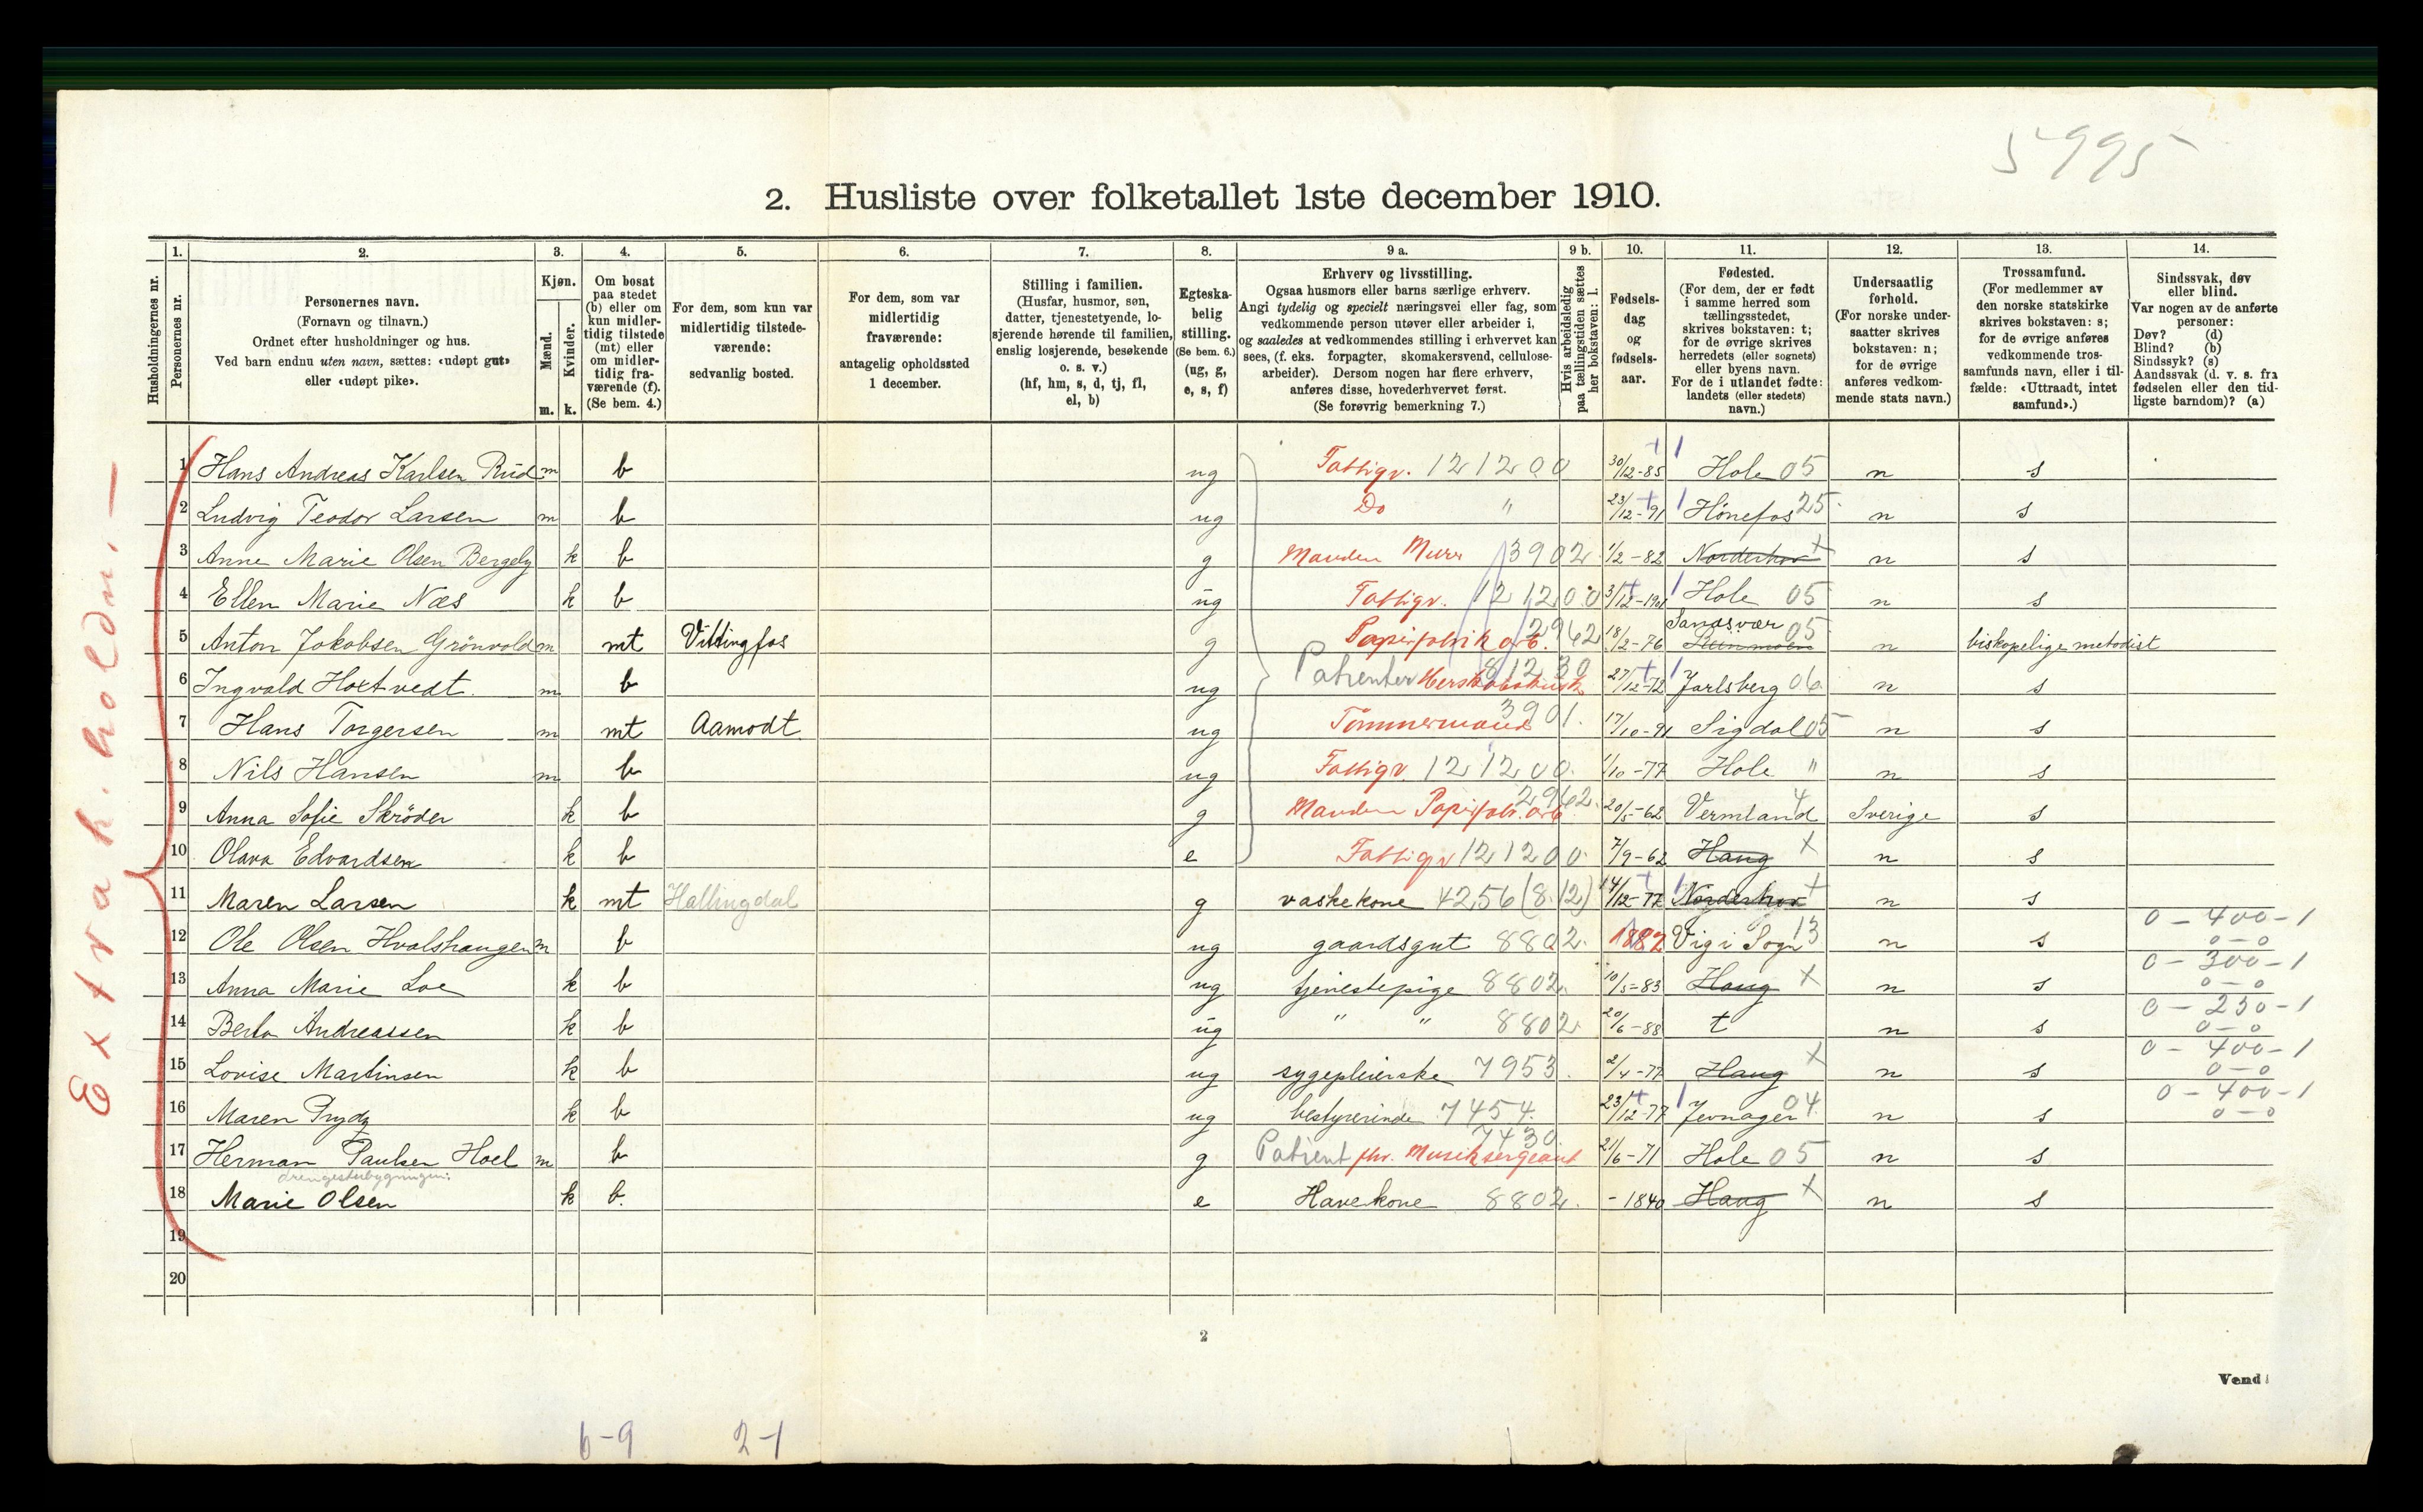 5995
2. Husliste over folketallet 1ste december 1910.
Husholdningernes nr.
1. Personernes nr.
2. Personernes navn. (Fornavn og tilnavn.) Ordnet efter husholdninger og hus. Ved barn endnu uten navn, sættes: «udøpt gut» eller «udøpt pike».
3. Kjøn. Mænd. m. Kvinder. k.
4. Om bosat paa stedet (b) eller om kun midlertidig tilstede (mt) eller om midlertidig fraværende (f). (Se bem. 4.)
5. For dem, som kun var midlertidig tilstedeværende: sedvanlig bosted.
6. For dem, som var midlertidig fraværende: antagelig opholdssted 1 december.
7. Stilling i familien. (Husfar, husmor, søn, datter, tjenestetyende, losjerende hørende til familien, enslig losjerende, besøkende o. s. v.) (hf, hm, s, d, tj, fl, el, b)
8. Egteskabelig stilling. (Se bem. 6.) (ug, g, e, s, f)
9 a. Erhverv og livsstilling. Ogsaa husmors eller barns særlige erhverv. Angi tydelig og specielt næringsvei eller fag, som vedkommende person utøver eller arbeider i, og saaledes at vedkommendes stilling i erhvervet kan sees, (f. eks. forpagter, skomakersvend, cellulosearbeider). Dersom nogen har flere erhverv, anføres disse, hovederhvervet først. (Se forøvrig bemerkning 7.)
9 b. Hvis arbeidsledig paa tællingstiden sættes her bokstaven: l.
10. Fødselsdag og fødselsaar.
11. Fødested. (For dem, der er født i samme herred som tællingsstedet, skrives bokstaven: t; for de øvrige skrives herredets (eller sognets) eller byens navn. For de i utlandet fødte: landets (eller stedets) navn.)
12. Undersaatlig forhold. (For norske undersaatter skrives bokstaven: n; for de øvrige anføres vedkommende stats navn.)
13. Trossamfund. (For medlemmer av den norske statskirke skrives bokstaven: s; for de øvrige anføres vedkommende trossamfunds navn, eller i tilfælde: «Uttraadt, intet samfund».)
14. Sindssvak, døv eller blind. Var nogen av de anførte personer: Døv? (d) Blind? (b) Sindssyk? (s) Aandssvak (d. v. s. fra fødselen eller den tidligste barndom)? (a)
Extrah. holdn. —
1 Hans Andreas Karlsen Rud m b ug Fattigv. 121200 30/12-85 Hole 05 n s
2 Ludvig Teodor Larsen m b ug Do " 23/12-91 Hönefos 25 n s
3 Anne Marie Olsen Bergeby k b g Manden Murer 3902 1/2-82 Norderhov n s
4 Ellen Marie Næs k b ug Fattigv. 121200 3/12-1901 Hole 05 n s
5 Anton Jakobsen Grönvold m mt Vittingfos g Papirfabrik arb. 2962 18/2-76 Sandsvær 05 n biskopelige metodist
6 Ingvald Hoxtvedt. m b ug Patienter 81230 27/12-72 Jarlsberg 06 n s
7 Hans Torgersen m mt Aamodt ug Tömmermand 3901. 17/10-91 Sigdal 05 n s
8 Nils Hansen m b ug Fattigv. 121200. 1/10-77 Hole " n s
9 Anna Sofie Skröder k b g Manden Papirfabr. arb. 2962. 20/5-62 Vermland 4 Sverige s
10 Olava Edvardsen k b e Fattigv 121200 7/9-62 Haug n s
11 Maren Larsen k mt Hallingdal g vaskekone 4256 (8.12) 14/12-77 Norderhov n s
12 Ole Olsen Hvalshaugen m b ug gaardsgut 8802. 1882 Vig i Sogn 13 n s 0-400-1 0-0
13 Anna Marie Loe k b ug tjenestepige 8802. 10/5-83 Haug n s 0-300-1 0-0
14 Berta Andreassen k b ug " " 8802. 20/6-88 t n s 0-250-1 0-0
15 Lovise Martinsen k b ug sygepleierske 7953. 2/4-77 Haug n s 0-400-1 0-0
16 Maren Prydz k b ug bestyrerinde 7454. 23/12-77 Jevnager 04 n s 0-400-1 0-0
17 Herman Paulsen Hoel m b g Patient fhv. Musiksergeant 7430 21/6-71 Hole 05 n s
18 Marie Olsen k b. e Havekone 8802. - 1840 Haug n s
19
20
2
Vend!
6-9 2-1